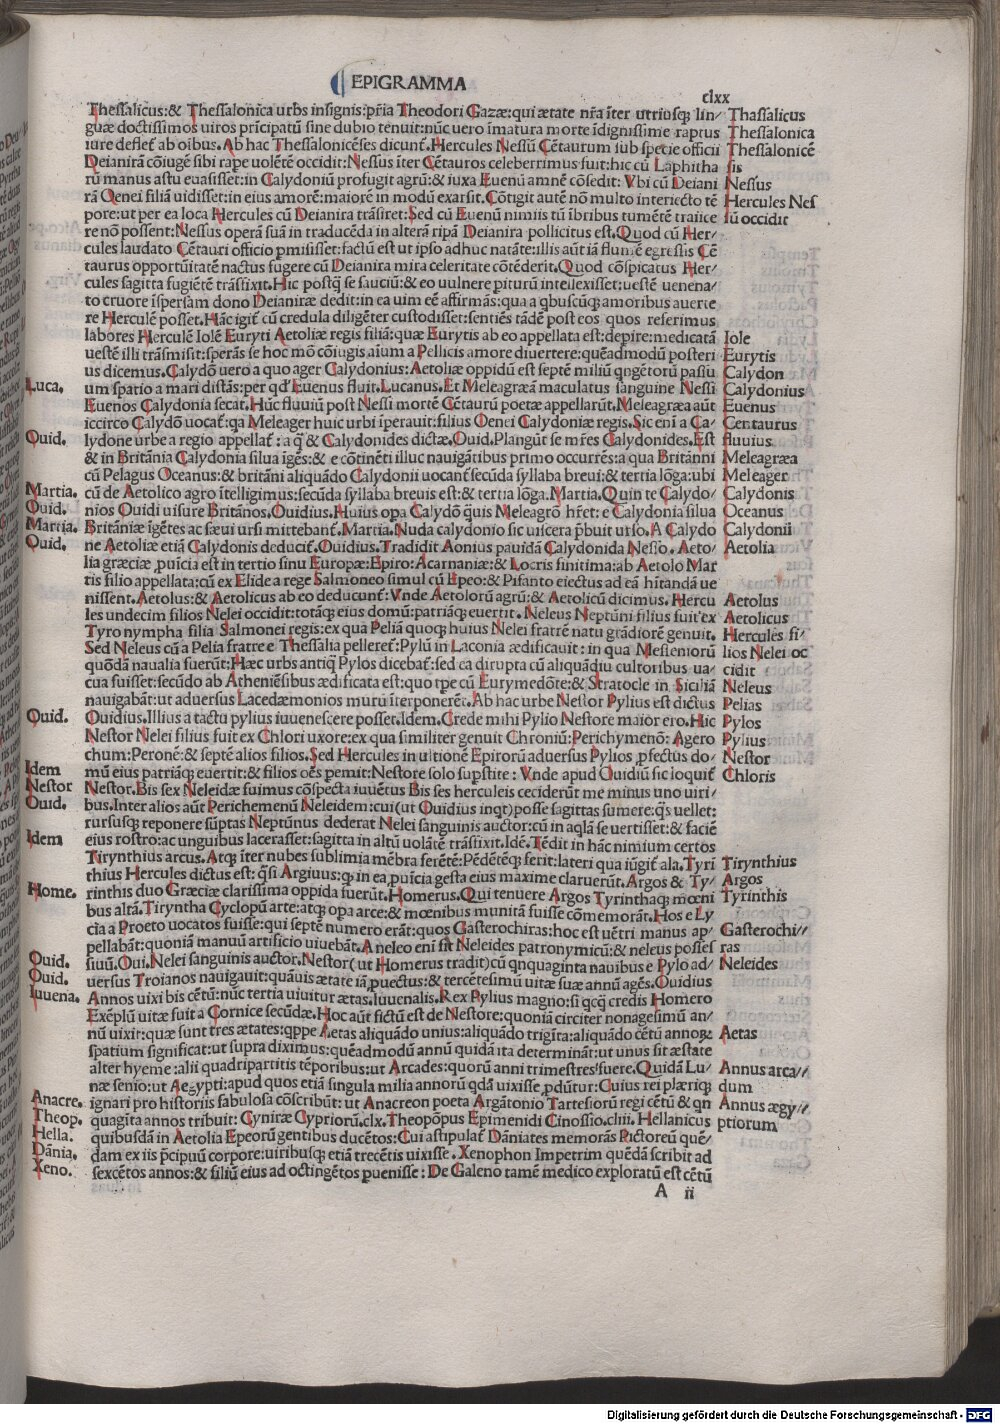 EPIGRAMMA
clxx
Thessalicus:& Thessalonica urbs insignis:pr̃ia Theodori Gazæ:qui ætate nr̃a īter utriusq; lin/
guæ doctissimos uiros prīcipatū sine dubio tenuit:nūc uero īmatura morte īdignissime raptus
iure deflet᷑ ab oībus. Ab hac Thessalonicēses dicunt᷑. Hercules Nessū Cētaurum sub specie officii
Deianirā cōiugē sibi rape uolētē occidit: Nessus īter Cētauros celeberrimus fuit: hic cū Laphitha
rū manus astu euasisset: in Calydoniū profugit agrū:& iuxa Euenū amnē cōsedit: Vbi cū Deiani
rā Oenei filiā uidisset: in eius amorē: maiorē in modū exarsit. Cōtigit autē nō multo interiecto tē
pore: ut per ea loca Hercules cū Deianira trāsiret: Sed cū Euenū nimiis tū ībribus tumētē traiice
re nō possent: Nessus operā suā in traducēda in alterā ripā Deianira pollicitus est. Quod cū Her/
cules laudato Cētauri officio pmisisset: factū est ut ipso adhuc natāte: illis aūt iā flumē egressis Cē
taurus opportūitatē nactus fugere cū Deianira mira celeritate cōtēderit. Quod cōspicatus Her/
cules sagitta fugiētē trāsfixit. Hic postq̄ se sauciū:& eo uulnere pīturū intellexisset: uestē uenena/
to cruore īspersam dono Deianiræ dedit: in ea uim eē affirmās: qua a qbuscūq; amoribus auerte
re Herculē posset. Hāc igit᷑ cū credula diligēter custodisset: sentiēs tādē post eos quos referimus
labores Herculē Iolē Euryti Aetoliæ regis filiā: quæ Eurytis ab eo appellata est: depire: medicatā
uestē illi trāsmisit: sperās se hoc mō cōiugis aīum a Pellicis amore diuertere: quēadmodū posteri
us dicemus. Calydō uero a quo ager Calydonius: Aetoliæ oppidū est septē miliū qngētorū passu
um spatio a mari distās: per qd̓ Euenus fluit. Lucanus. Et Meleagræā maculatus sanguine Nessi
Euenos Calydonia secat. Hūc fluuiū post Nessi mortē Cētaurū poetæ appellarūt. Meleagræa aūt
iccirco Calydō uocat᷑: qa Meleager huic urbi īperauit: filius Oenei Calydoniæ regis. Sic enī a Ca/
lydone urbe a regio appellat᷑ : a q̄ & Calydonides dictæ. Ouid. Plangūt se mr̄es Calydonides. Est
& in Britānia Calydonia silua igēs:& e cōtinēti illuc nauigātibus primo occurrēs: a qua Britānni
cū Pelagus Oceanus:& britāni aliquādo Calydonii uocant᷑ secūda syllaba breui:& tertia lōga: ubi
cū de Aetolico agro ītelligimus: secūda syllaba breuis est:& tertia lōga. Martia. Quin te Calydo/
nios Ouidi uisure Britānos. Ouidius. Huius opa Calydō q̄uis Meleagrō hr̄et: e Calydonia silua
Britāniæ īgētes ac sæui ursi mittebant᷑. Martia. Nuda calydonio sic uiscera p̄buit urso. A Calydo
ne Aetoliæ etiā Calydonis deducit᷑. Ouidius. Tradidit Aonius pauidā Calydonida Nesso. Aeto/
lia græciæ puīcia est in tertio sinu Europæ: Epiro: Acarnaniæ:& Locris finitima: ab Aetolo Mar
tis filio appellata: cū ex Elide a rege Salmoneo simul cū Epeo:& Pisanto eiectus ad eā hītandā ue
nissent. Aetolus:& Aetolicus ab eo deducunt᷑: Vnde Aetolorū agrū:& Aetolicū dicimus. Hercu
les undecim filios Nelei occidit: totāq; eius domū: patriāq; euertit. Neleus Neptūni filius fuit ex
Tyro nympha filia Salmonei regis: ex qua Peliā quoq; huius Nelei fratrē natu grādiorē genuit.
Sed Neleus cū a Pelia fratre e Thessalia pelleret᷑: Pylū in Laconia ædificauit: in qua Meseniorū
quōdā naualia fuerūt: Hæc urbs antiq̄ Pylos dicebat᷑: sed ea dirupta cū aliquādiu cultoribus ua/
cua fuisset: secūdo ab Atheniēsibus ædificata est: quo tpe cū Eurymedōte:& Stratocle in Siciliā
nauigabāt: ut aduersus Lacedæmonios murū īterponerēt. Ab hac urbe Nestor Pylius est dictus
Ouidius. Illius a tactu pylius iuuenescere posset. Idem. Crede mihi Pylio Nestore maior ero. Hic
Nestor Nelei filius fuit ex Chlori uxore: ex qua similiter genuit Chroniū: Perichymenō: Agero
chum: Peronē:& septē alios filios. Sed Hercules in ultionē Epirorū aduersus Pylios pfectus do/
mū eius patriāq; euertit:& filios oēs pemit: Nestore solo supstite : Vnde apud Ouidiū sic loquit᷑
Nestor. Bis sex Neleidæ fuimus cōspecta iuuētus Bis sex herculeis ceciderūt me minus uno uiri/
bus. Inter alios aūt Perichemenū Neleidem: cui (ut Ouidius inqt) posse sagittas sumere: q̄s uellet:
rursusq; reponere sūptas Neptūnus dederat Nelei sanguinis auctor: cū in aqlā se uertisset:& faciē
eius rostro: ac unguibus lacerasset: sagitta in altū uolātē trāsfixit. Idē. Tēdit in hāc nimium certos
Tirynthius arcus. Atq; īter nubes sublimia mēbra ferētē: Pēdētēq; ferit: lateri qua iūgit᷑ ala. Tyri
thius Hercules dictus est: q̄si Argiuus: q; in ea puīcia gesta eius maxime claruerūt. Argos & Ty/
rinthis duo Græciæ clarissima oppida fuerūt. Homerus. Qui tenuere Argos Tyrinthaq; mœni
bus altā. Tiryntha Cyclopū arte: atq; opa arce:& mœnibus munitā fuisse cōmemorāt. Hos e Ly
cia a Proeto uocatos fuisse: qui septē numero erāt: quos Gasterochiras: hoc est uētri manus ap/
pellabāt: quoniā manuū artificio uiuebāt. A neleo enī sit Neleides patronymicū:& neleus posses
siuū. Oui. Nelei sanguinis auctor. Nestor (ut Homerus tradit) cū qnquaginta nauibus e Pylo ad/
uersus Troianos nauigauit: quāuis ætate iā puectus:& tercētesimū uitæ suæ annū agēs. Ouidius
Annos uixi bis cētū: nūc tertia uiuitur ætas. Iuuenalis. Rex Pylius magno: si qcq̄ credis Homero
Exēplū uitæ fuit a Cornice secūdæ. Hoc aūt fictū est de Nestore: quoniā circiter nonagesimū an/
nū uixit: quæ sunt tres ætates: qppe Aetas aliquādo unius: aliquādo trigīta: aliquādo cētū annoꝝ
spatium significat: ut supra diximus: quēadmodū annū quidā ita determināt: ut unus sit æstate
alter hyeme : alii quadripartitis tēporibus: ut Arcades: quorū anni trimestres fuere. Quidā Lu/
næ senio: ut Aegypti: apud quos etiā singula milia annorū qdā uixisse pdūtur: Cuius rei plæriq;
ignari pro historiis fabulosa cōscribūt: ut Anacreon poeta Argātonio Tartesiorū regi cētū & qn
quagīta annos tribuit: Cyniræ Cypriorū. clx. Theopōpus Epimenidi Cinossio. clui. Hellanicus
quibusdā in Aetolia Epeorū gentibus ducētos: Cui astipulat᷑ Dāniates memorās Pictoreū quē/
dam ex iis p̄cipuū corpore: uiribusq; etiā trecētis uixisse. Xenophon Impetrim quēdā scribit ad
sexcētos annos:& filiū eius ad octingētos puenisse : De Galeno tamē medico exploratū est cētū
A ii
Thassalicus
Thessalonica
Thessalonicē
sis
Nessus
Hercules Nes
sū occidit
Iole
Eurytis
Calydon
Calydonius
Euenus
Centaurus
fluuius
Meleagræa
Meleager
Calydonis
Oceanus
Calydonii
Aetolia
Aetolus
Aetolicus
Hercules fi/
lios Nelei oc
cidit
Neleus
Pelias
Pylos
Pylius
Nestor
Chloris
Tirynthius
Argos
Tyrinthis
Gasterochi//
ras
Neleides
Aetas
Annus arca//
dum
Annus ægy//
ptiorum
Luca.
Ouid.
Martia.
Ouid.
Martia.
Ouid.
Ouid.
Idem
Nestor
Ouid.
Idem
Home.
Ouid.
Ouid.
Iuuena.
Anacre.
Theop.
Hella.
Dānia.
Xeno.
Digitalisierung gefördert durch die Deutsche Forschungsgemeinschaft - DFG